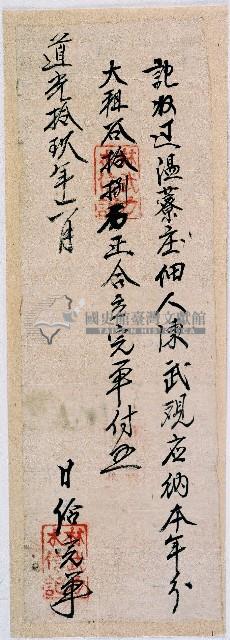 記收過溫藔庄佃人陳武覌应納本年分
大租谷拾捌石正合立完單付炤
道光拾玖年十一月
日給完單
國史館臺灣文獻館
TAIWAN HISTORICA